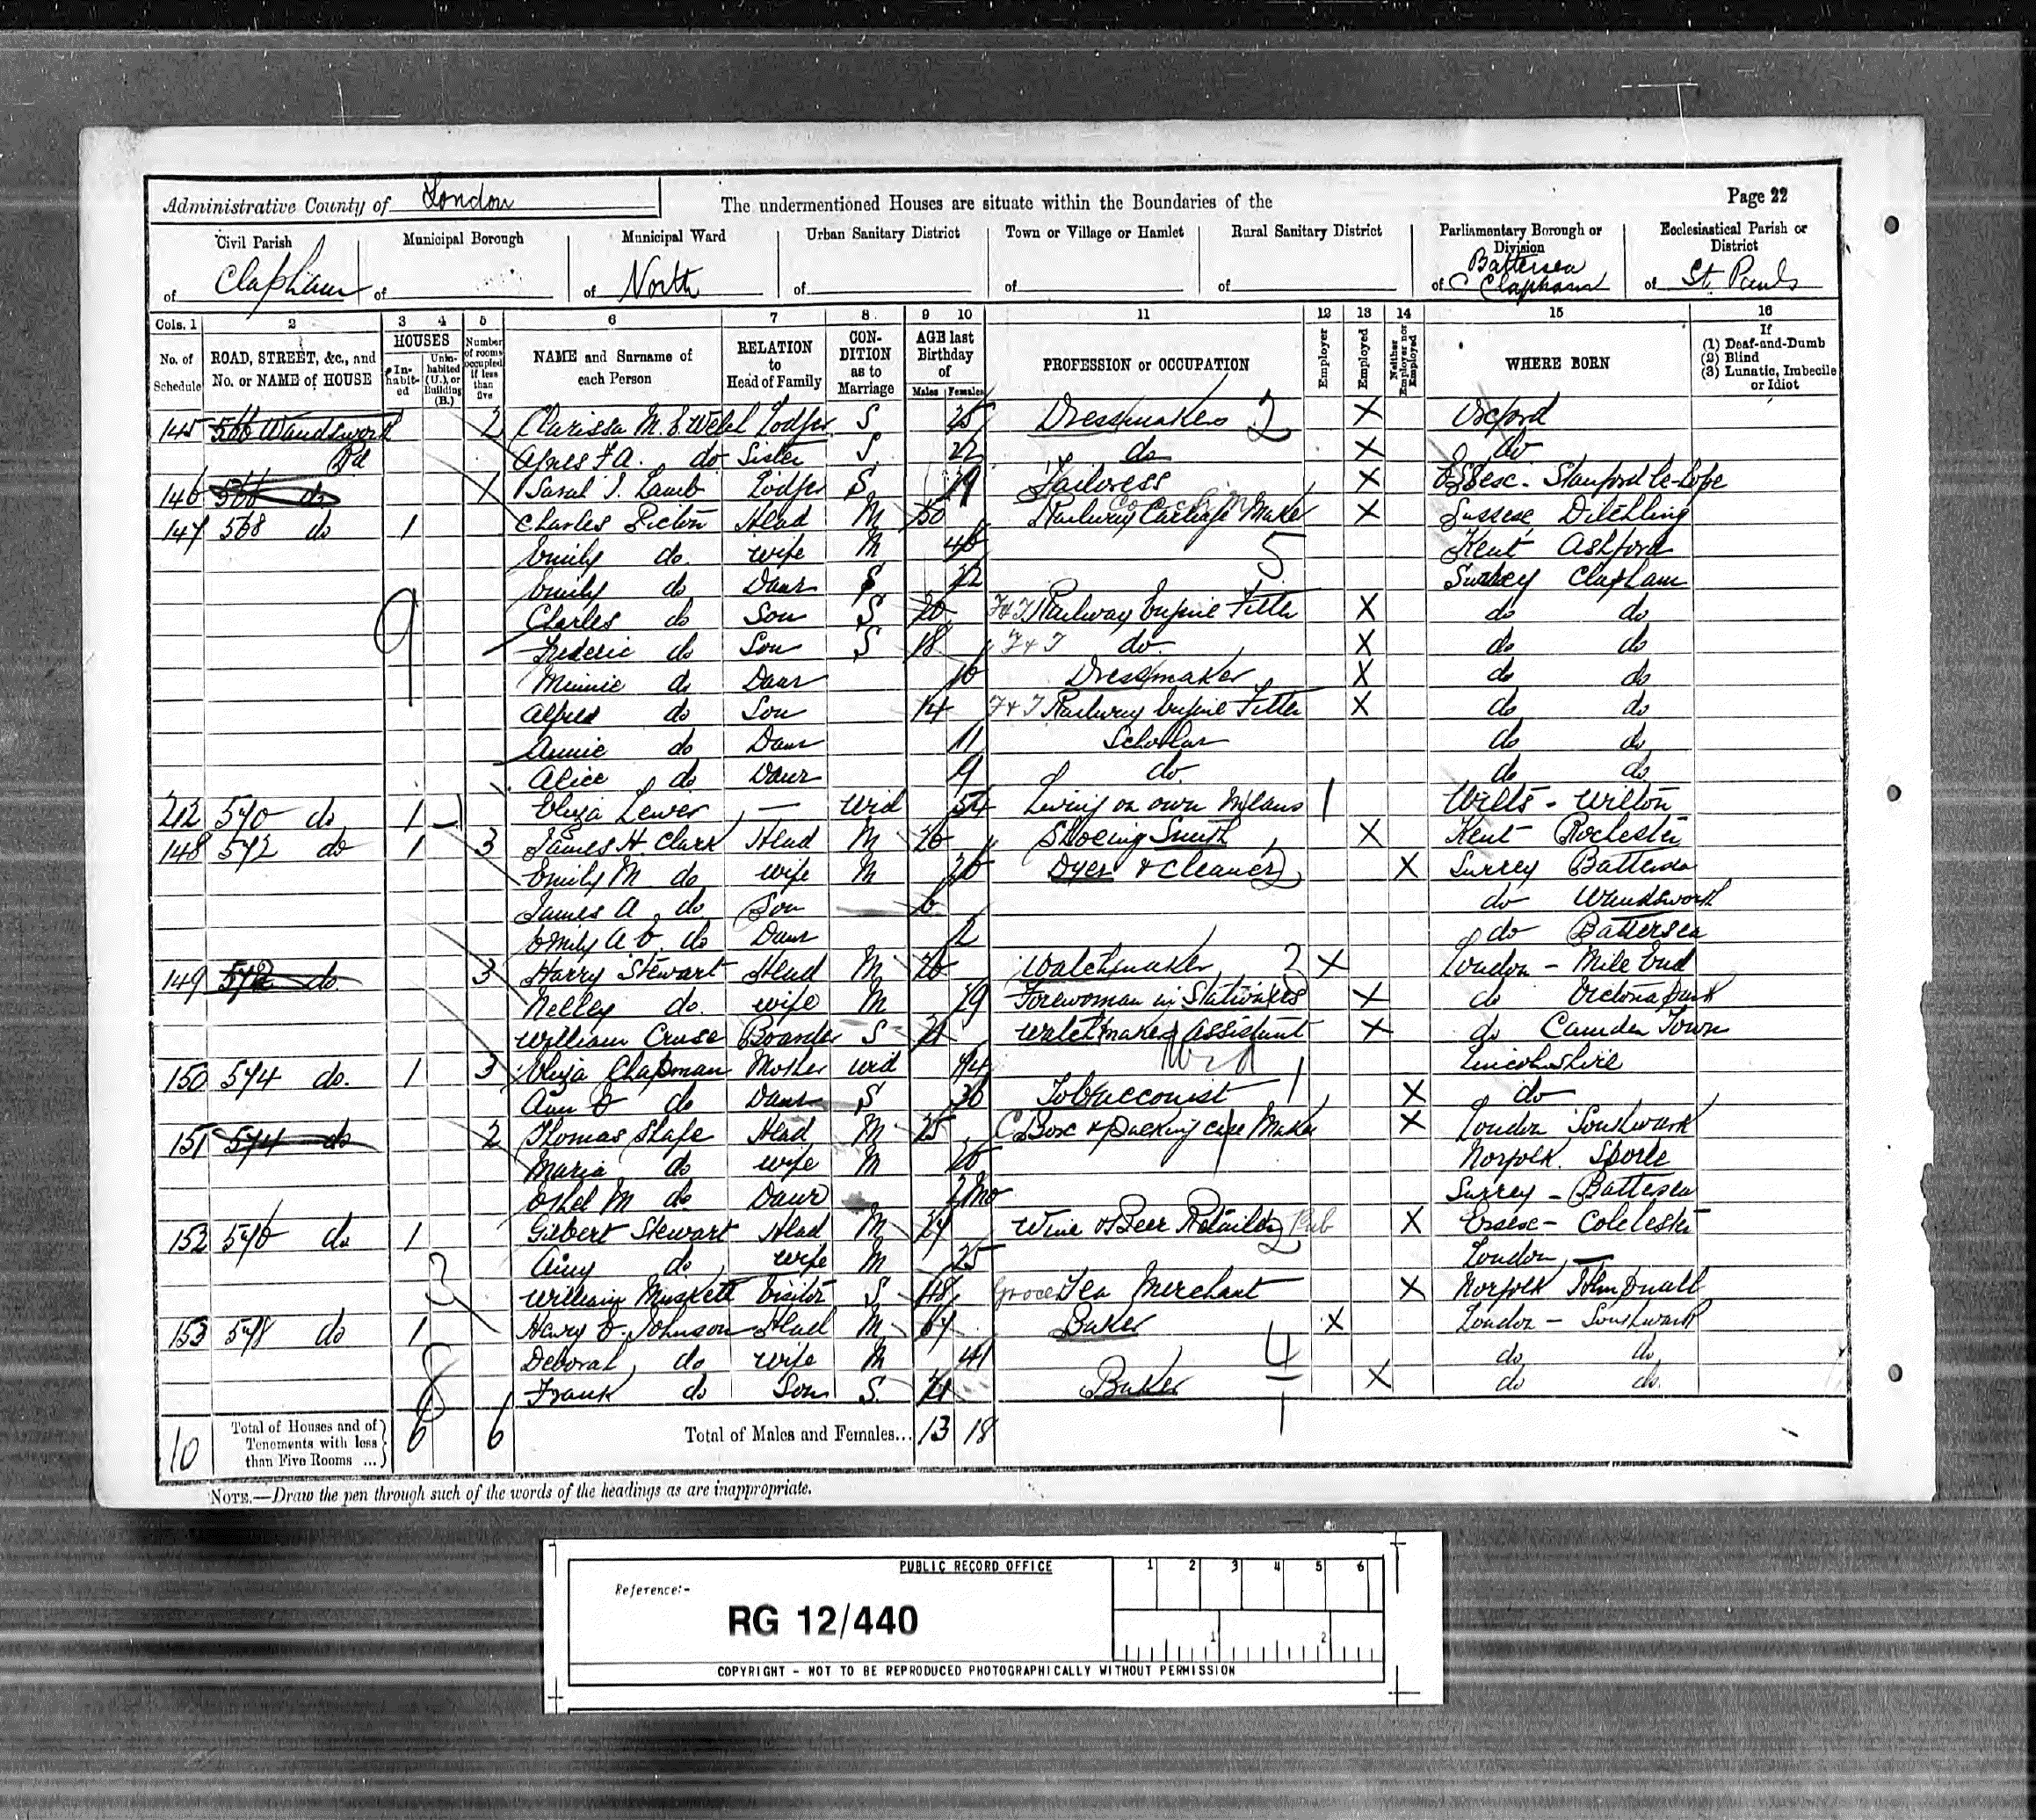 Administrative County of London
The undermentioned Houses are situate within the Boundaries of the
Page 22
Civil Parish of Clapham
Municipal Borough of
Municipal Ward of North
Urban Sanitary District of
Town or Village or Hamlet of
Rural Sanitary District of
Parliamentary Borough or Division of Battersea Clapham
Ecclesiastical Parish or District of St Pauls
Cols. 1 2 3 4 5 6 7 8 9 10 11 12 13 14 15 16
No. of Schedule
ROAD, STREET, &c., and No. or NAME of HOUSE
HOUSES
Inhabited
Uninhabited (U.), or Building (B.)
Number of rooms occupied if less than five
NAME and Surname of each Person
RELATION to Head of Family
CONDITION as to Marriage
AGE last Birthday of
Males Females
PROFESSION or OCCUPATION
Employer
Employed
Neither Employer nor Employed
WHERE BORN
If (1) Deaf-and-Dumb (2) Blind (3) Lunatic, Imbecile or Idiot
145 566 Wandsworth Rd 2 Clarissa M. E. Welch Lodger S 25 Dressmakers 2 X Oxford
Agnes F A. do Sister S 22 do X do
146 566 do 1 Sarah J. Lamb Lodger S 19 Tailoress X Essex - Stanford le-Hope
147 568 do 1 Charles Picton Head M 50 Railway Carriage Maker X Sussex Ditchling
Emily do. wife M 46 5 Kent Ashford
Emily do Daur S 22 Surrey Clapham
Charles do Son S 20 F & T Railway Engine Fitter X do do
9 Frederic do Son S 18 F & T do X do do
Minnie do Daur 16 Dressmaker X do do
Alfred do Son 14 F & T Railway Engine Fitter X do do
Annie do Daur 11 Scholar do do
Alice do Daur 9 do do do
212 570 do 1 Eliza Lewer — Wid 54 Living on own Means 1 Wilts - Wilton
148 572 do 1 3 James H. Clark Head M 26 Shoeing Smith X Kent Rochester
Emily M do wife M 26 Dyer & Cleaner 2 X Surrey Battersea
James A do Son 6 do Wandsworth
Emily A E. do Daur 2 do Battersea
149 572 do 3 Harry Stewart Head M 26 Watchmaker 2 X London - Mile End
Nelley do. wife M 29 Forewoman in Stationers X do Victoria Park
William Cruse Boarder S 21 Watchmakers Assistant X do Camden Town
150 574 do. 1 3 Eliza Chapman Mother Wid 74 Lincolnshire
Ann E do Daur S 36 Tobacconist 1 X do
151 574 do 2 Thomas Slape Head M 25 Box & packing case Maker X London Southwark
Maria do wife M 26 Norfolk. Sporle
Ethel M do Daur 2 Mo Surrey - Battersea
152 576 do 1 Gilbert Stewart Head M 27 Wine & Beer Retailer 2 Pub X Essex - Colchester
Amy do wife M 25 London —
3 William Muskett Visitor S 48 Grocer Tea Merchant X Norfolk
153 578 do 1 Harry E. Johnson Head M 67 Baker X London - Southwark
Deborah do wife M 41 4 do do
Frank do Son S. 21 Baker X do do.
10 Total of Houses and of Tenements with less than Five Rooms ... 6 6 Total of Males and Females... 13 18
NOTE.—Draw the pen through such of the words of the headings as are inappropriate.
PUBLIC RECORD OFFICE
1 2 3 4 5 6
Reference:-
RG 12/440
1 2
COPYRIGHT - NOT TO BE REPRODUCED PHOTOGRAPHICALLY WITHOUT PERMISSION